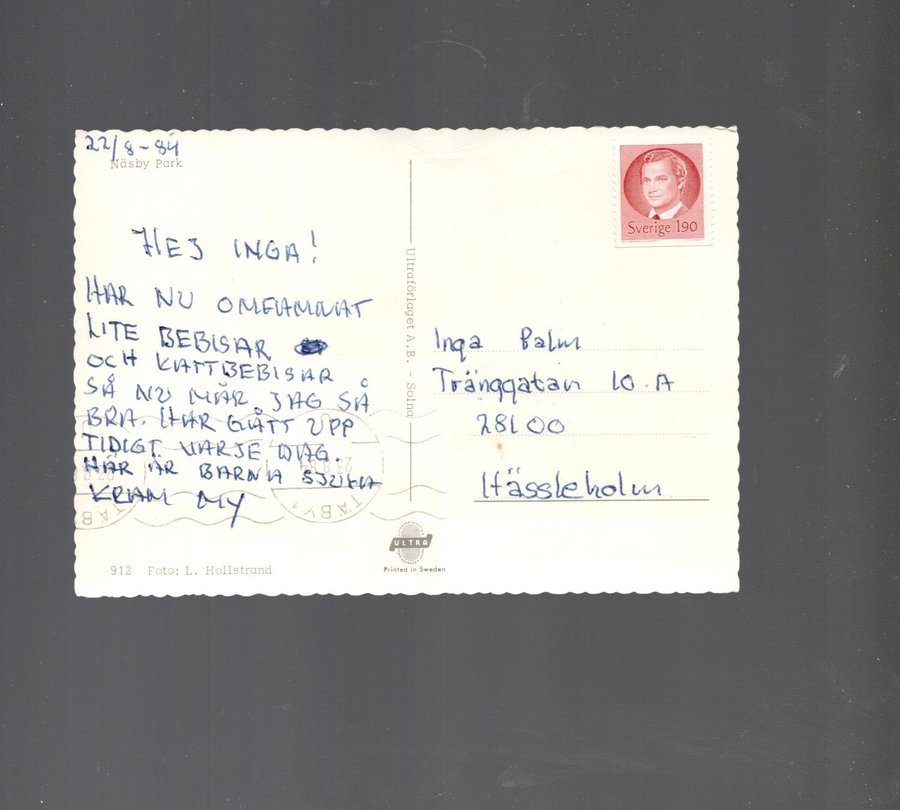 22/8-84
Näsby Park
HEJ INGA!
HAR NU OMFAMNAT
LITE BEBISAR
OCH KATTBEBISAR
SÅ NU MÅR JAG SÅ
BRA. HAR GÅTT UPP
TIDIGT VARJE DAG.
HÄR ÄR BARNA SJUKA
KRAM MY
912 Foto: L. Hollstrand
Ultraförlaget A.B. - Solna
ULTRA
Printed in Sweden
Sverige 190
Inga Palm
Tränggatan 10 A
28100
Hässleholm
TÄBY